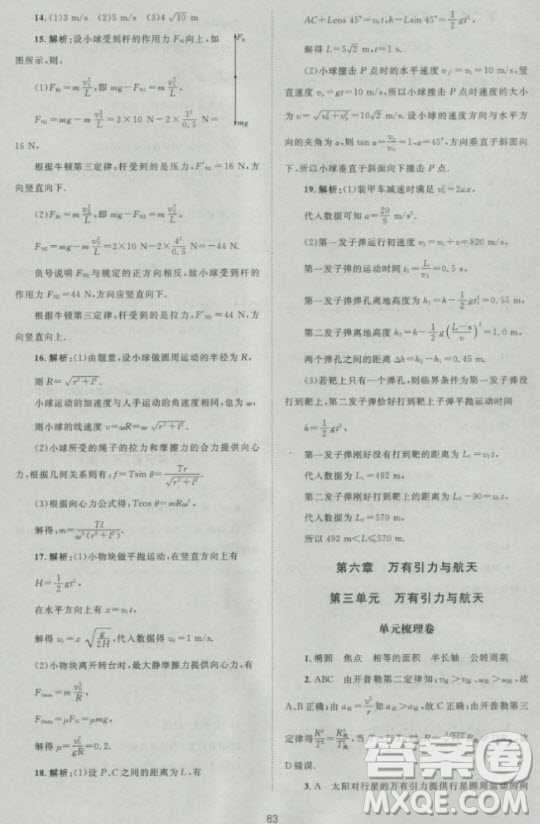 14.(1)3 m/s (2)5 m/s (3)4√10 m
15.解析:设小球受到杆的作用力 F_N 向上,如
图所示,则:
(1)F_向=m v₁²/L,即 mg-F_N1=m v₁²/L
F_N1=mg-m v₁²/L=2×10 N-2× 2²/0.5 N=
16 N
根据牛顿第三定律:杆受到的是压力,F'_N1=16 N,
方向竖直向下.
(2)F_向=m v₂²/L,即 mg-F_N2=m v₂²/L
F_N2=mg-m v₂²/L=2×10 N-2× 4²/0.5 N=
-44 N
负号说明 F_N2 与规定的正方向相反,故小球受到杆
的作用力 F_N2=44 N,方向应竖直向下.
根据牛顿第三定律:杆受到的是拉力,F'_N2=44 N,方
向竖直向上.
16.解析:(1)由题意,设小球做圆周运动的半径为 R,
则 R=√(r²+l²).
小球运动的角速度与人手运动的角速度相等为 ω,
则小球的线速度 v=ωR=ω√(r²+l²).
(2)小球所受的绳子的拉力和摩擦力的合力提供向心
力,根据几何关系有:f=Tsin θ= Tr/√(r²+l²)
(3)根据向心力公式得:Tcos θ=mRω²,
解得:m= Tl/(ω²(r²+l²))
17.解析:(1)小物块做平抛运动,在竖直方向上有
H= 1/2 gt²,
在水平方向上有 x=v₀t,
解得 v₀=x√(g/2H),代入数据得 v₀=1 m/s.
(2)小物块离开转台时,最大静摩擦力提供向心力,有
F_fmax=m v₀²/R
F_fmax=μF_N=μmg
解得 μ= v₀²/gR =0.2.
18.解析:(1)设 P、C 之间的距离为 L,根据平抛运动规律有
AC+Lcos 45°=v₀t,h-Lsin 45°= 1/2 gt²,
解得 L=5√2 m,t=1 s.
(2)小球撞击 P 点时的水平速度 v_∥=v₀=10 m/s,
竖直速度 v_⊥=gt=10 m/s,所以小球撞击 P 点时速度
v=√(v₀²+v_⊥²)=10√2 m/s,设小球的速度与水平方
向的夹角为 α,则 tan α= v_⊥/v_∥ =1,方向垂直于斜面向
下,所以小球垂直于斜面向下撞击到 P 点.
19.解析:(1)装甲车减速时满足 v₀²=2ax,
代入数据可得 a= 20/9 m/s².
(2)第一发子弹运行初速度 v₁=v₀+v=820 m/s,
第一发子弹的运动时间 t₁= L/v₁ =0.5 s,
第一发子弹弹孔离地高度 h₁=h- 1/2 gt₁²=0.55 m,
第二发子弹离地高度 h₂=h- 1/2 g((L-s)/v)²=1.0 m,
两个弹孔之间的距离 Δh=h₂-h₁=0.45 m.
(3)若靶上只有一个弹孔,则临界条件为第一发子弹
与第二发子弹恰好打到靶上子弹运动时间
h= 1/2 gt²,
第一发子弹刚好没有打到靶的距离 L₁=v₁t,
代入数据为 L₁=492 m,
第二发子弹刚好打到靶上的距离为 L₂-90=v₂t,
代入数据为 L₂=570 m,
所以 492 m<L≤570 m.
第六章 万有引力与航天
第三单元 万有引力与航天
单元梳理卷
1.椭圆 焦点 相等的面积 半长轴 公转周期
2.ABC 由开普勒第二定律有
A、B 正确;由 a= v²/r
D 错误.
3.A 太阳对行星的万有引力提供行星圆周运动的向
83
答案圈